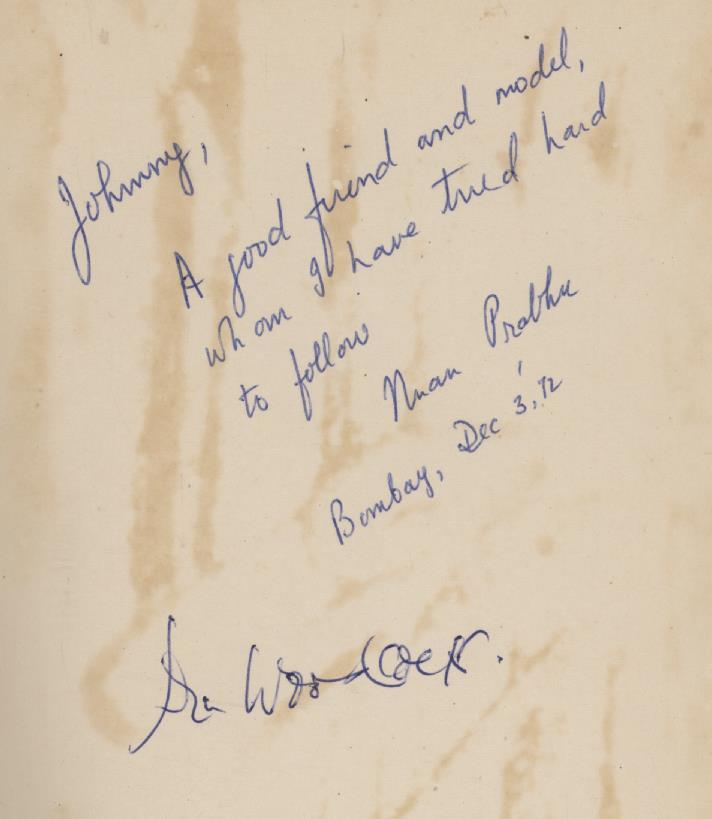 Johnny,
A good friend and model,
whom I have tried hard
to follow
Prabhu
Bombay, Dec 3, 72
Woodcock.